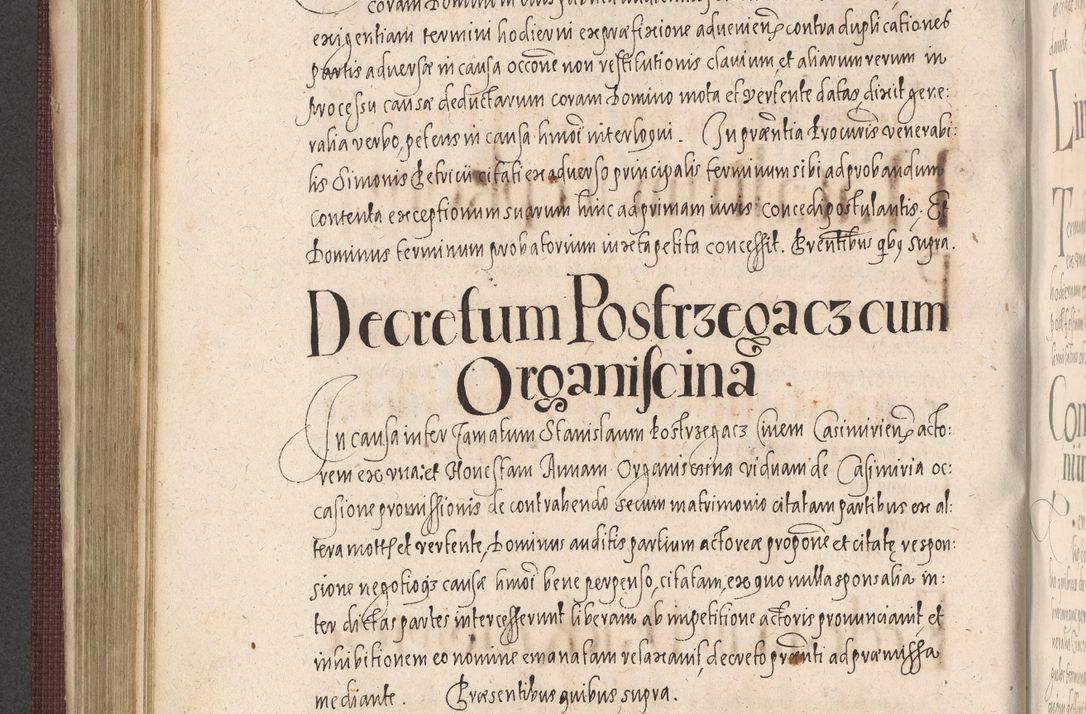 exigentiam termini hodierni ex præfixione advenien. contra duplicationes
partis adversæ in causa occone non restitutionis clavium et aliarum rerum in
processu causæ deductarum coram Domino mota et vertente datas dixit gene:
ralia verbo, petens in causa hmoi interloqui. In præntia Procuris venerabi:
lis Simonis Petricii citati ex adverso principalis terminum sibi ad probandum
contenta exceptionum suarum hinc ad primam iuris concedi postulantis. Et
Dominus terminum probatorium iuxta petita concessit. Præntibus qbs supra.
Decretum Postrzegacz cum
Organiscina
In causa inter Famatum Stanislaum Postrzegacz Civem Casimirien. acto:
rem ex una, et Honestam Annam Organiscina viduam de Casimiria oc:
casione promissionis de contrahendo secum matrimonio citatam partibus ex al:
tera mott. et vertente, Dominus auditis partium actoreæ propone et citatę respon:
sione negotioqz causæ hmoi bene perpenso, citatam, ex quo nulla sponsalia in:
ter dictas partes intercesserunt liberam ab impetitione actoris pronunciavit et
inhibitionem eo nomine emanatam relaxavit, decreto prænti ad præmissa
mediante. Præsentibus quibus supra.